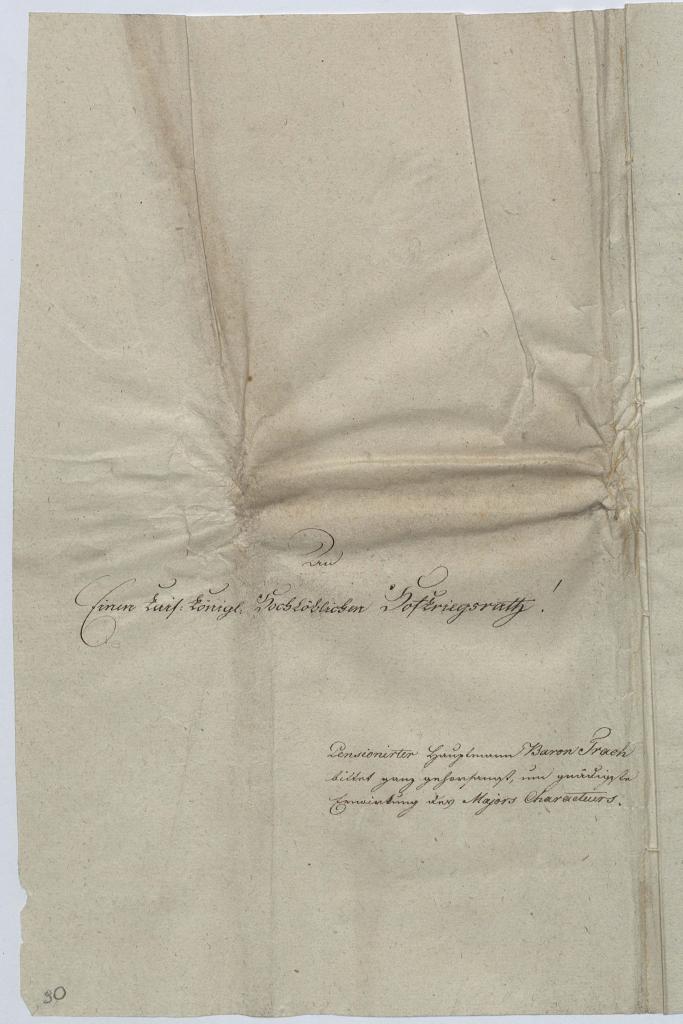 An
Einen kais: königl. Hochlöblichen Hofkriegsrath!
Pensionirter Hauptmann Baron Trach
bittet ganz gehorsamst, um gnädigste
Erwirkung des Majors Characteurs.
30